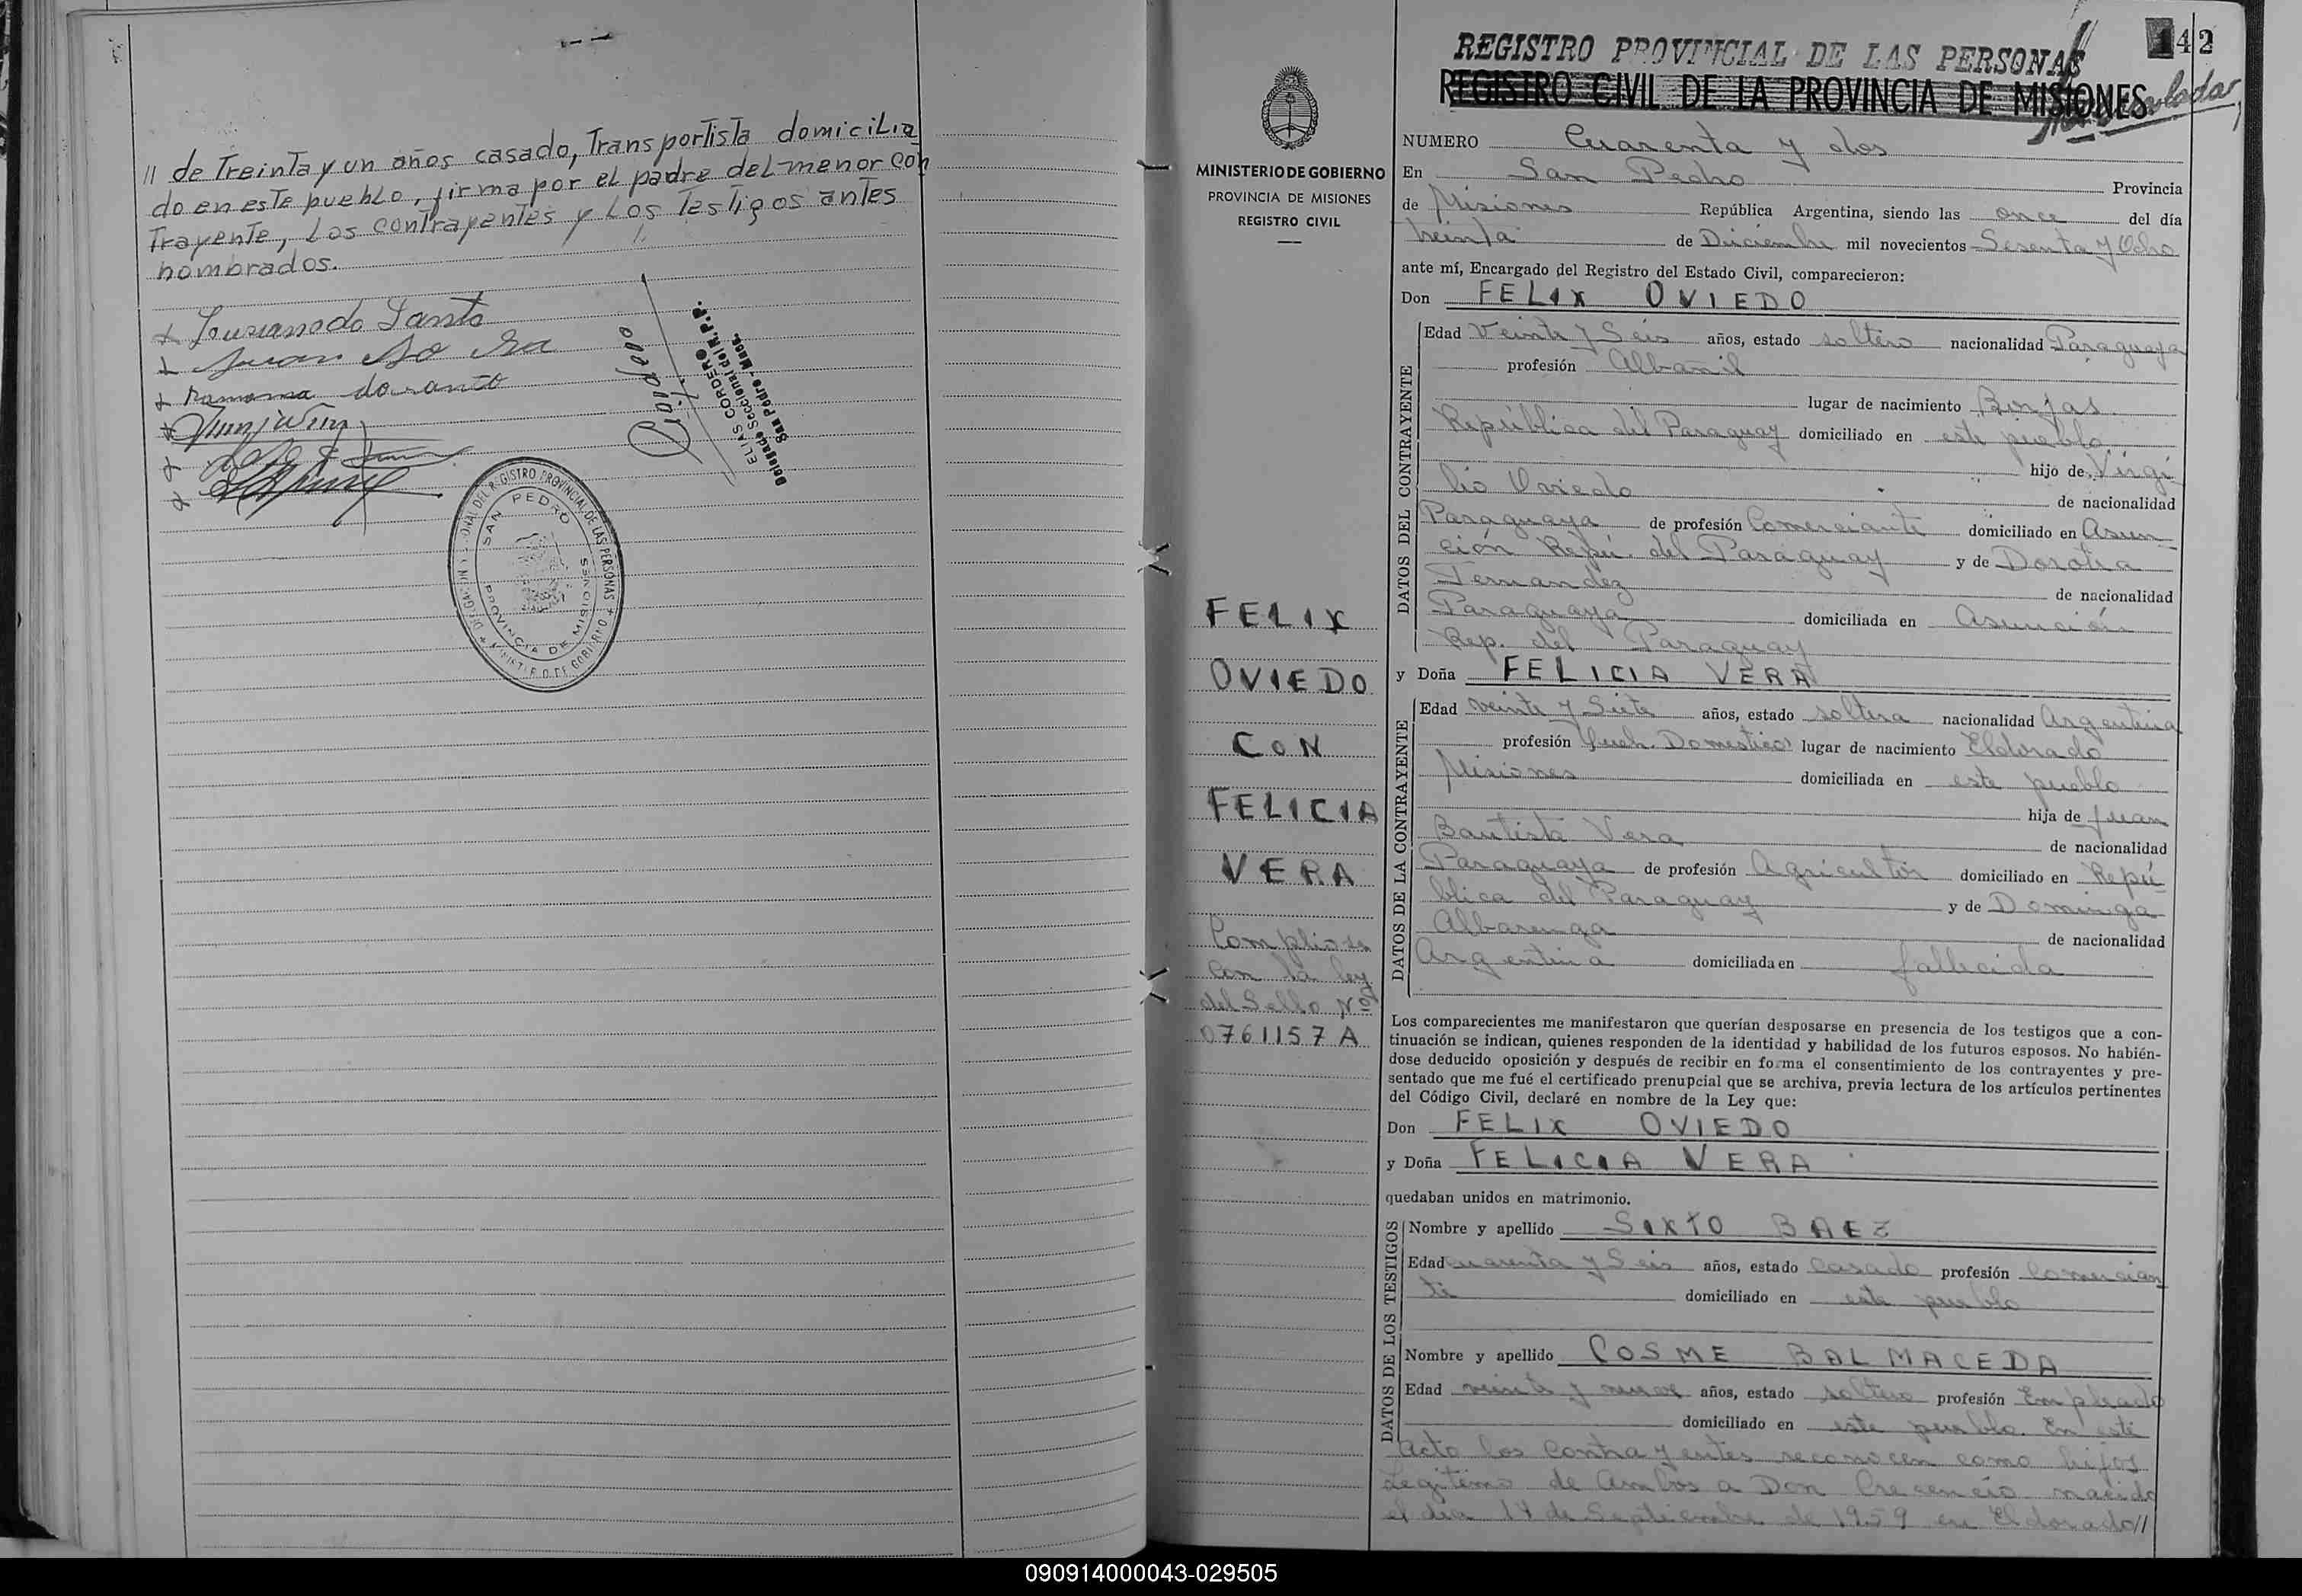 // de Treinta y un años casado, Transportista domicilia
do en este pueblo, firma por el padre del menor con
Trayente, Los contrayentes y Los Testigos antes
nombrados.
Ovidepio
ELIAS CORDERO
Delegado Seccional del R.P.P.
San Pedro - Mnes.
DELEGACION SECCIONAL DEL REGISTRO PROVINCIAL DE LAS PERSONAS
MINISTERIO DE GOBIERNO
SAN PEDRO
PROVINCIA DE MISIONES
MINISTERIO DE GOBIERNO
PROVINCIA DE MISIONES
REGISTRO CIVIL
FELIX
OVIEDO
CON
FELICIA
VERA
Compliose
con la ley
del Sello Nº
0761157 A
142
REGISTRO PROVINCIAL DE LAS PERSONAS
REGISTRO CIVIL DE LA PROVINCIA DE MISIONES
NUMERO Cuarenta y dos
En San Pedro Provincia
de Misiones República Argentina, siendo las once del día
treinta de Diciembre mil novecientos Sesenta y Ocho
ante mí, Encargado del Registro del Estado Civil, comparecieron:
Don FELIX OVIEDO
DATOS DEL CONTRAYENTE
Edad Veinte y Seis años, estado soltero nacionalidad Paraguaya
profesión Albañil
lugar de nacimiento Borjas
República del Paraguay domiciliado en este pueblo
hijo de Virgi
lio Oviedo de nacionalidad
Paraguaya de profesión Comerciante domiciliado en Asun
ción Repú. del Paraguay y de Dorotea
Fernandez de nacionalidad
Paraguaya domiciliada en Asunción
Rep. del Paraguay
y Doña FELICIA VERA
DATOS DE LA CONTRAYENTE
Edad veinte y Siete años, estado soltera nacionalidad Argentina
profesión Queh. Domesticos lugar de nacimiento Eldorado
Misiones domiciliada en este pueblo
hija de Juan
Bautista Vera de nacionalidad
Paraguaya de profesión Agricultor domiciliado en Repú
blica del Paraguay y de Dominga
Albarenga de nacionalidad
Argentina domiciliada en fallecida
Los comparecientes me manifestaron que querían desposarse en presencia de los testigos que a con-
tinuación se indican, quienes responden de la identidad y habilidad de los futuros esposos. No habién-
dose deducido oposición y después de recibir en forma el consentimiento de los contrayentes y pre-
sentado que me fué el certificado prenupcial que se archiva, previa lectura de los artículos pertinentes
del Código Civil, declaré en nombre de la Ley que:
Don FELIX OVIEDO
y Doña FELICIA VERA
quedaban unidos en matrimonio.
DATOS DE LOS TESTIGOS
Nombre y apellido SIXTO BAEZ
Edad cuarenta y Seis años, estado casado profesión Comercian
te domiciliado en este pueblo
Nombre y apellido COSME BALMACEDA
Edad veinte y nueve años, estado soltero profesión Empleado
domiciliado en este pueblo. En este
Acto los Contrayentes reconocen como hijos
Legitimo de Ambos a Don Crecencio nacido
el dia 14 de Septiembre de 1959 en Eldorado//
090914000043-029505